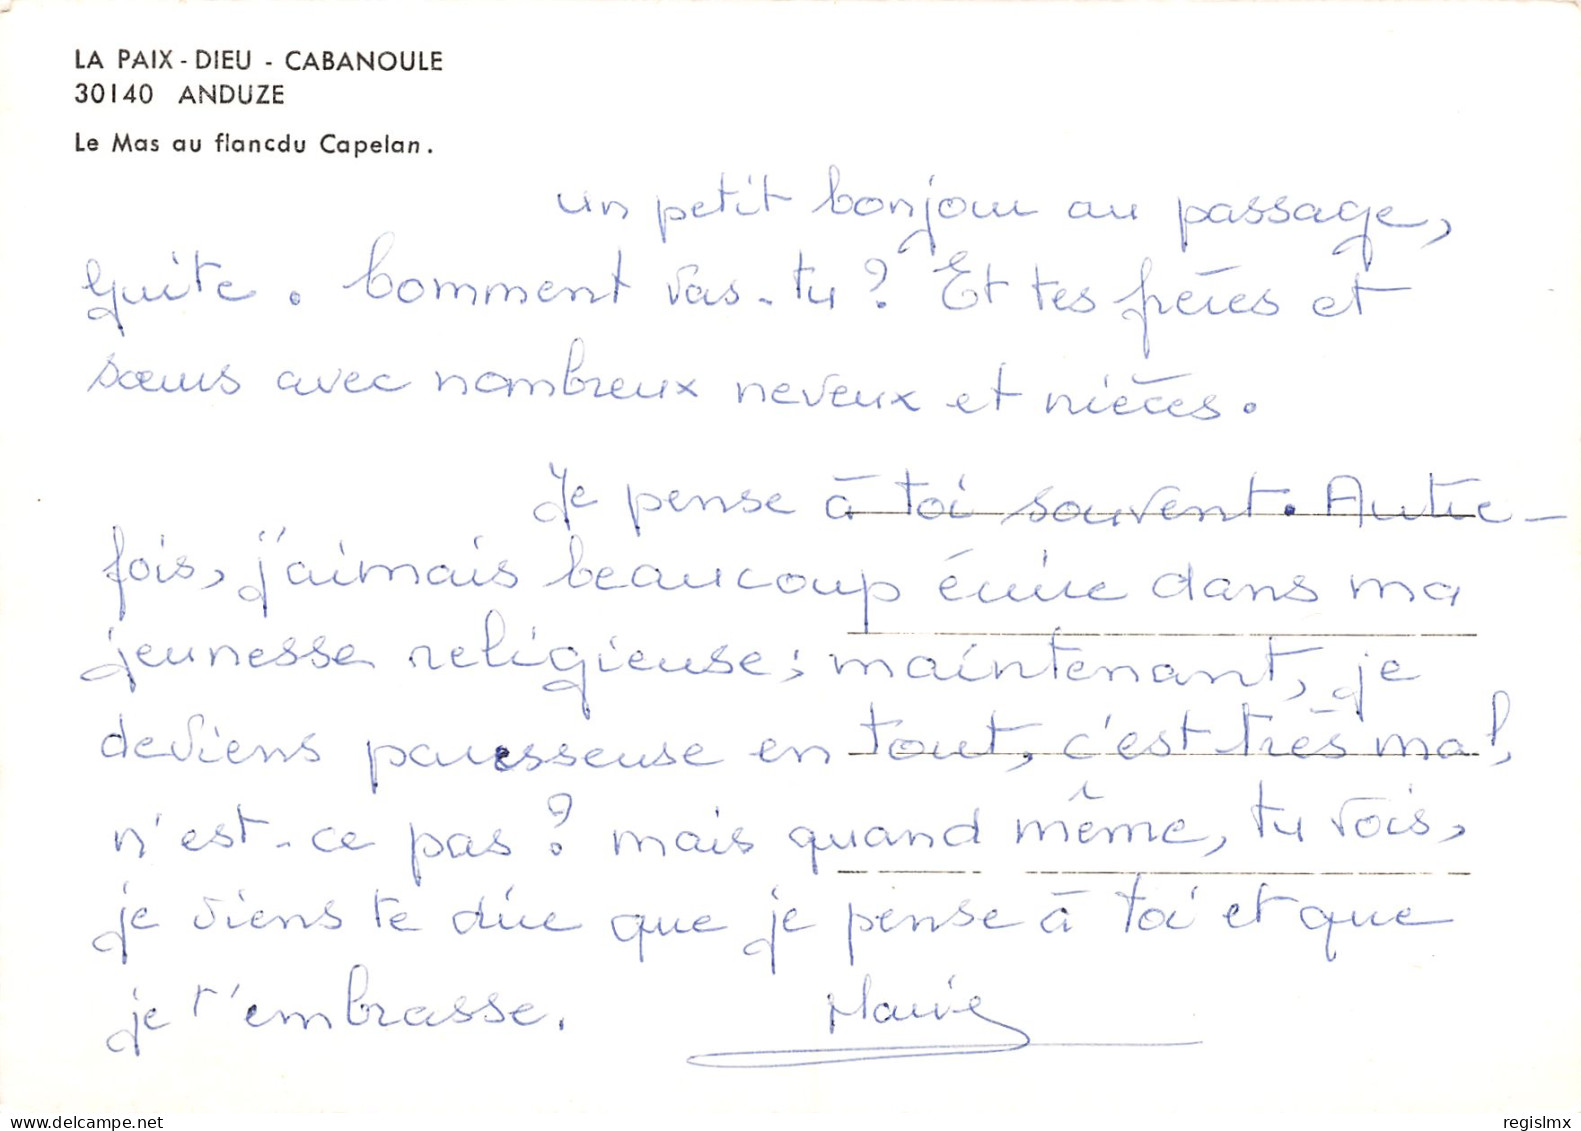 LA PAIX - DIEU - CABANOULE
30140 ANDUZE
Le Mas au flancdu Capelan.
un petit bonjour au passage,
Guite. Comment vas-tu ? Et tes frères et
sœurs avec nombreux neveux et nièces.
Je pense à toi souvent. Autre-
fois, j'aimais beaucoup écrire dans ma
jeunesse religieuse ; maintenant, je
deviens paresseuse en tout, c'est très mal,
n'est-ce pas ? mais quand même, tu vois,
je viens te dire que je pense à toi et que
je t'embrasse. Marie
delcampe.net
regislmx